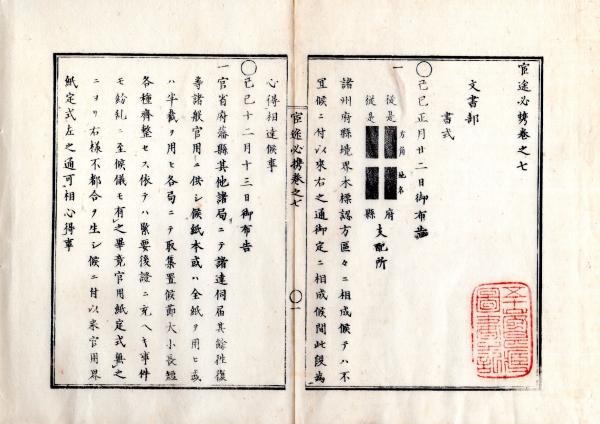 宦途必携卷之七
文書部
書式
〇己巳正月廿二日御布告
一
從是 方角 地名 府
從是 縣
支配所
諸州府縣境界木標認方區々ニ相成候テハ不
宜候ニ付以來右之通御定ニ相成候間此段為
心得相達候事
〇己巳十二月十三日御布告
一官省府藩縣其他諸局ニテ諸達伺届其餘往復
等諸般官用ニ供シ候紙本或ハ全紙ヲ用ヒ或
ハ半截ヲ用ヒ各局ニテ取集置候節大小長短
各種齊整セス依テハ緊要後證ニ充ヘキ事件
モ紛乱ニ至候儀モ有之畢竟官用紙定式無之
ニヨリ右様不都合ヲ生シ候ニ付以來官用界
紙定式左之通可相心得事
宦途必携卷之七
〇一